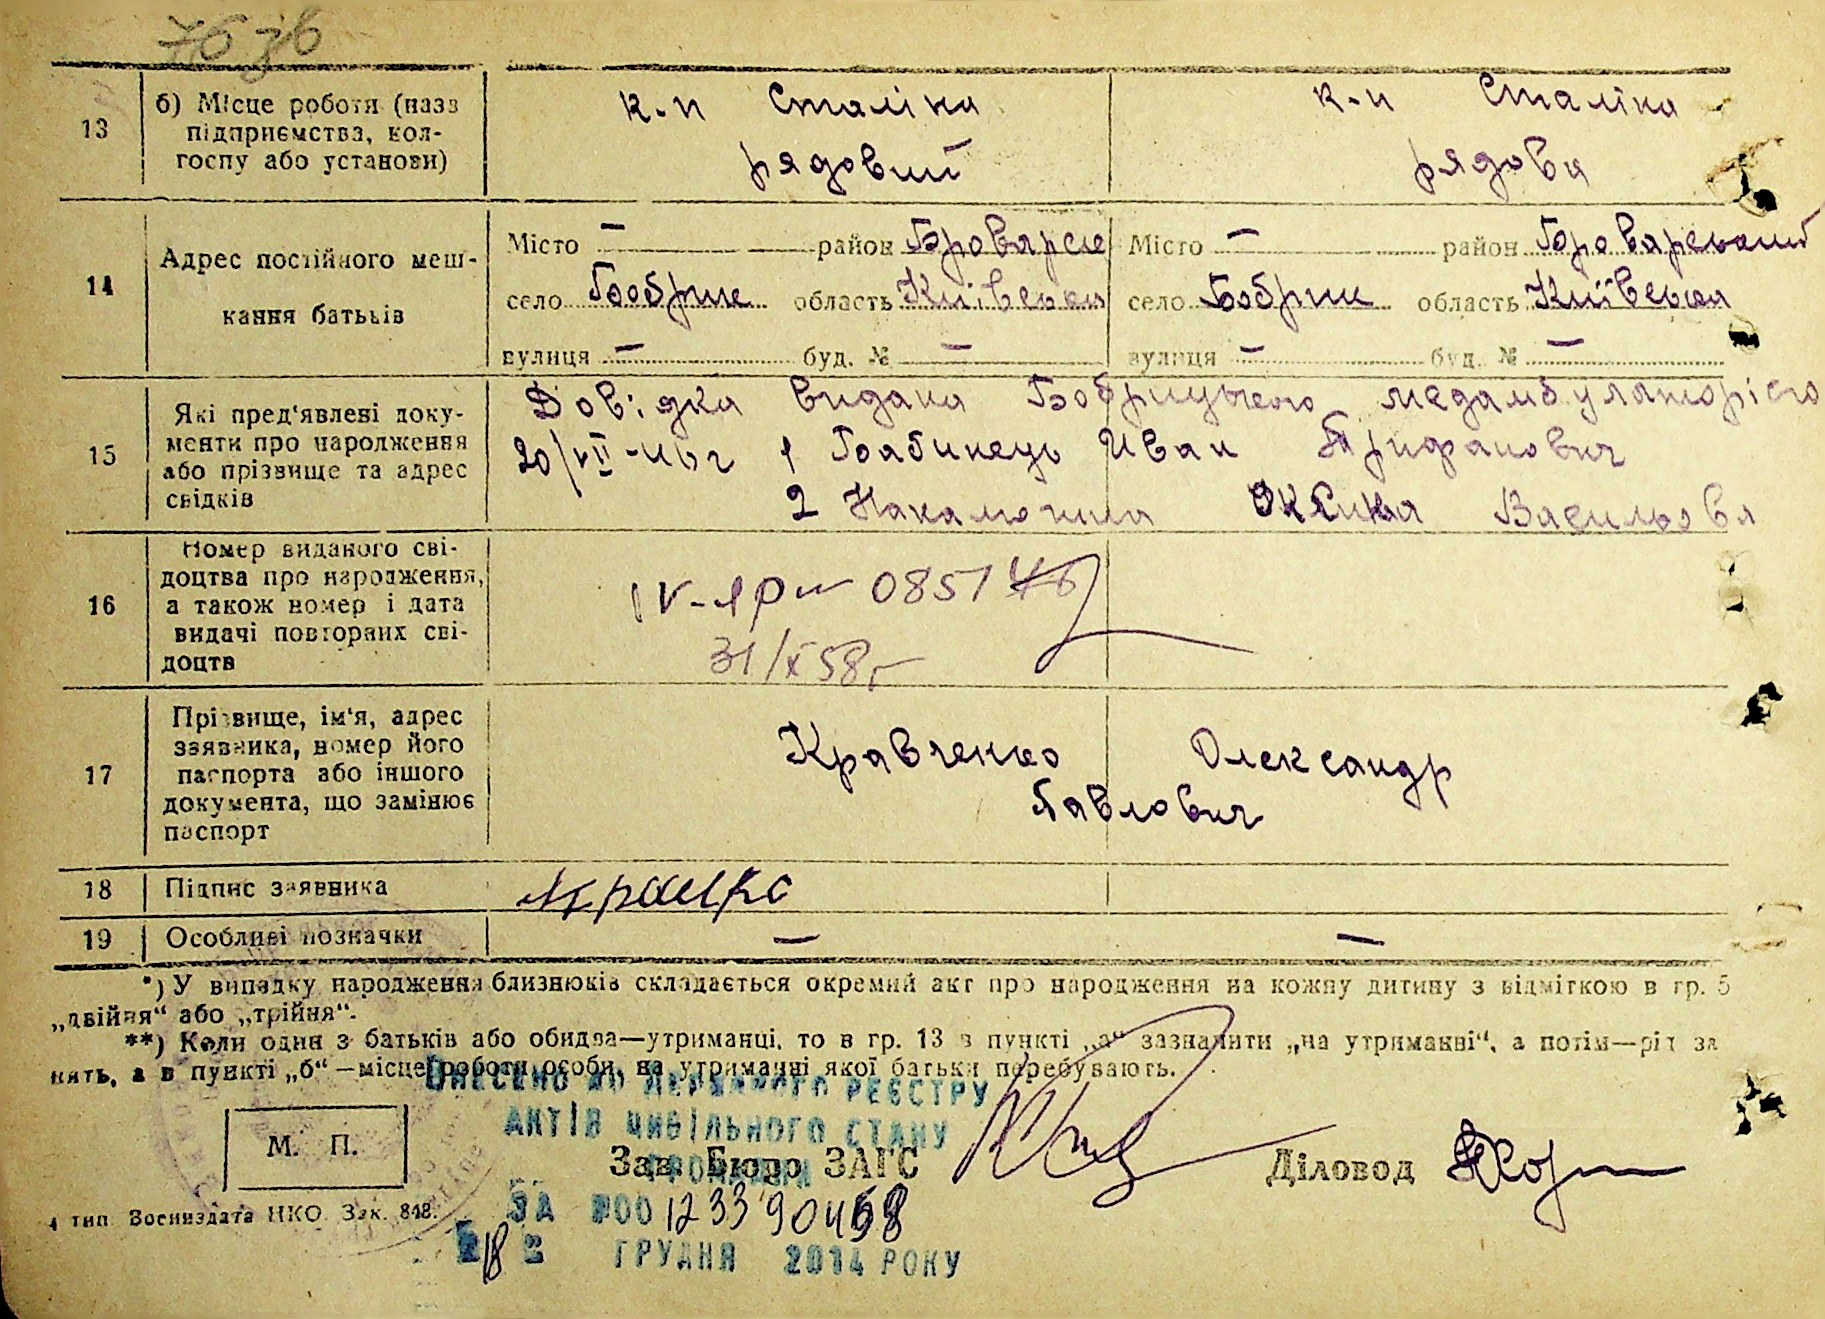 7636
13
б) Місце роботи (назв
підприємства, кол-
госпу або установи)
к-п Сталіна
рядовий
к-п Сталіна
рядова
14
Адрес постійного меш-
кання батьків
Місто — район Броварськ
село Бобрик область Київська
вулиця — буд. № —
Місто — район Броварський
село Бобрик область Київська
вулиця — буд. № —
15
Які пред'явлені доку-
менти про народження
або прізвище та адрес
свідків
Довідка видана Бобрицькою медамбулаторією
20/VII-46 г 1 Бабинець Иван Трифанович
2 Васильовна
16
Номер виданого сві-
доцтва про народження,
а також номер і дата
видачі повторних сві-
доцтв
085146
31/X 58 г
17
Прізвище, ім'я, адрес
заявника, номер його
паспорта або іншого
документа, що замінює
паспорт
Кравченко Олександр
Павлович
18
Підпис заявника
19
Особливі позначки
— —
*) У випадку народження близнюків складається окремий акт про народження на кожну дитину з відміткою в гр. 5
„двійня“ або „трійня“.
**) Коли один з батьків або обидва—утриманці, то в гр. 13 в пункті „а“ зазначити „на утриманні“, а потім—рід за
нять, а в пункті „б“—місце роботи особи, на утриманні якої батьки перебувають.
ВНЕСЕНО ДО ДЕРЖАВНОГО РЕЄСТРУ
АКТІВ ЦИВІЛЬНОГО СТАНУ
ГРОМАДЯН
М. П.
Зав. Бюро ЗАГС
Діловод
4 тип. Воениздата НКО. Зак. 848.
ЗА №00123390468
18 ГРУДНЯ 2014 РОКУ